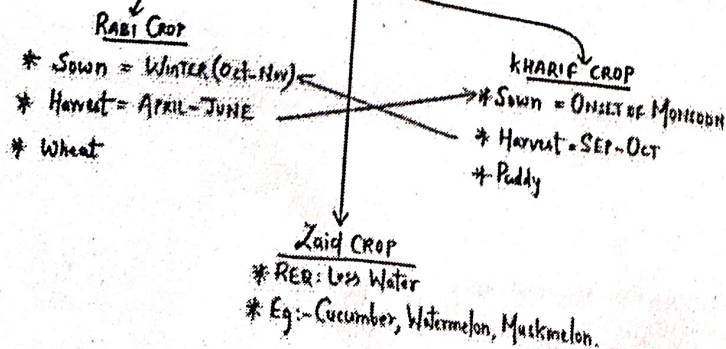 RABI CROP
* Sown = WINTER (Oct-Nov)
* Harvest = APRIL-JUNE
* Wheat
KHARIF CROP
* Sown = ONSET OF MONSOON
* Harvest = SEP-OCT
* Paddy
Zaid CROP
* REQ: Less Water
* Eg:- Cucumber, Watermelon, Muskmelon.